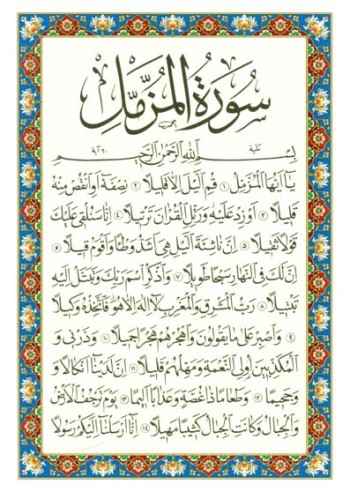 سورة المزمل
مكية بسم الله الرحمن الرحيم ٢٠ آية
يا أيها المزمل ١ قم الليل إلا قليلا ٢ نصفه أو انقص منه
قليلا ٣ أو زد عليه ورتل القرآن ترتيلا ٤ إنا سنلقي عليك
قولا ثقيلا ٥ إن ناشئة الليل هي أشد وطئا وأقوم قيلا ٦
إن لك في النهار سبحا طويلا ٧ واذكر اسم ربك وتبتل إليه
تبتيلا ٨ رب المشرق والمغرب لا إله إلا هو فاتخذه وكيلا
٩ واصبر على ما يقولون واهجرهم هجرا جميلا ١٠ وذرني و
المكذبين أولي النعمة ومهلهم قليلا ١١ إن لدينا أنكالا و
جحيما ١٢ وطعاما ذا غصة وعذابا أليما ١٣ يوم ترجف الأرض
والجبال وكانت الجبال كثيبا مهيلا ١٤ إنا أرسلنا إليكم رسولا